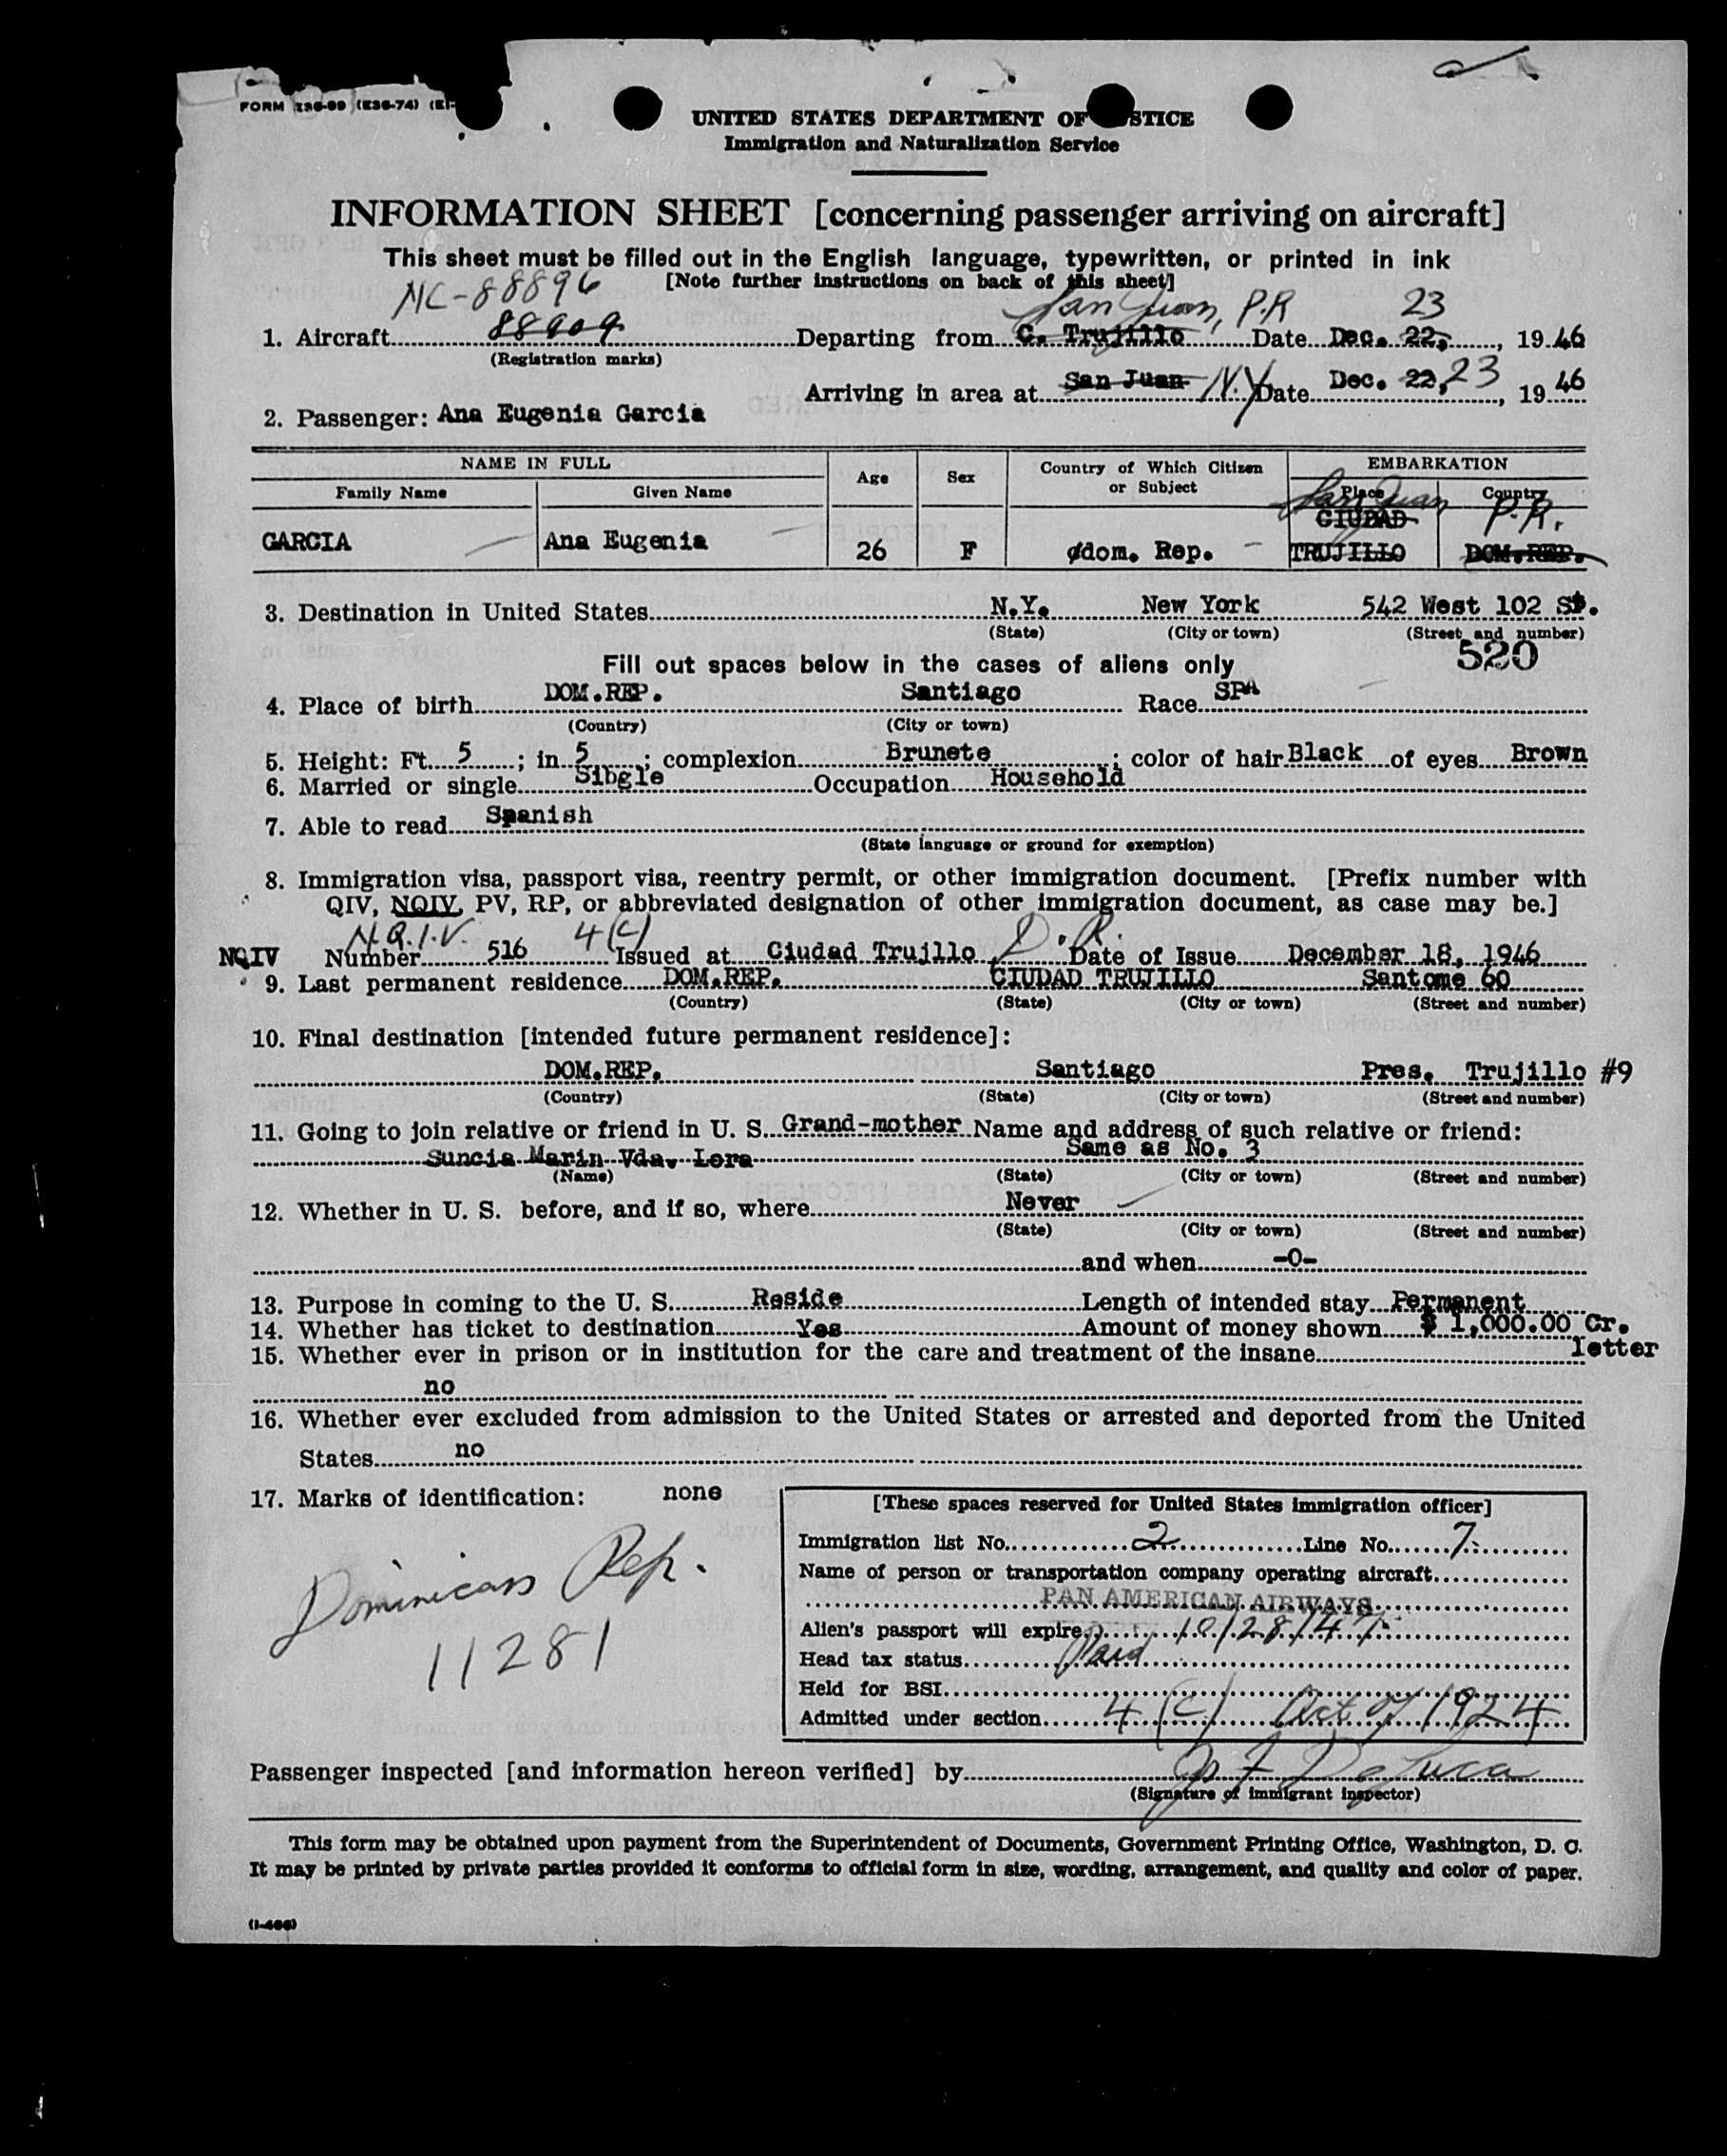 FORM I36-99 (E36-74) (EI-
UNITED STATES DEPARTMENT OF STICE
Immigration and Naturalization Service
INFORMATION SHEET [concerning passenger arriving on aircraft]
This sheet must be filled out in the English language, typewritten, or printed in ink
[Note further instructions on back of this sheet]
NC-88896 San Juan, P.R 23
1. Aircraft 88909 Departing from C. Trujillo Date Dec. 22, , 1946
(Registration marks)
Arriving in area at San Juan N.Y Date Dec. 22, 23 , 19 46
2. Passenger: Ana Eugenia Garcia
NAME IN FULL Age Sex Country of Which Citizen or Subject EMBARKATION
Family Name Given Name Place Country
San Juan P.R.
GARCIA Ana Eugenia 26 F dom. Rep. CIUDAD TRUJILLO DOM.REP.
3. Destination in United States N.Y. New York 542 West 102 St.
(State) (City or town) (Street and number)
520
Fill out spaces below in the cases of aliens only
4. Place of birth DOM.REP. Santiago Race SPA
(Country) (City or town)
5. Height: Ft. 5 ; in. 5 ; complexion Brunete ; color of hair Black of eyes Brown
6. Married or single Sibgle Occupation Household
7. Able to read Spanish
(State language or ground for exemption)
8. Immigration visa, passport visa, reentry permit, or other immigration document. [Prefix number with
QIV, NQIV, PV, RP, or abbreviated designation of other immigration document, as case may be.]
N.Q.I.V. 4(c) D.R.
NQIV Number 516 Issued at Ciudad Trujllo , Date of Issue December 18, 1946
9. Last permanent residence DOM.REP. CIUDAD TRUJILLO Santome 60
(Country) (State) (City or town) (Street and number)
10. Final destination [intended future permanent residence]:
DOM.REP. Santiago Pres. Trujillo #9
(Country) (State) (City or town) (Street and number)
11. Going to join relative or friend in U. S. Grand-mother Name and address of such relative or friend:
Suncia Marin Vda. Lora Same as No. 3
(Name) (State) (City or town) (Street and number)
12. Whether in U. S. before, and if so, where Never
(State) (City or town) (Street and number)
and when -0-
13. Purpose in coming to the U. S. Reside Length of intended stay Permanent
14. Whether has ticket to destination Yes Amount of money shown $ 1,000.00 Cr.
letter
15. Whether ever in prison or in institution for the care and treatment of the insane
no
16. Whether ever excluded from admission to the United States or arrested and deported from the United
States no
17. Marks of identification: none
Dominican Rep.
11281
[These spaces reserved for United States immigration officer]
Immigration list No. 2 Line No. 7
Name of person or transportation company operating aircraft
PAN AMERICAN AIRWAYS
Alien's passport will expire 10/28/47
Head tax status Paid
Held for BSI
Admitted under section 4 (c) Act of 1924
Passenger inspected [and information hereon verified] by DeLuca
(Signature of immigrant inspector)
This form may be obtained upon payment from the Superintendent of Documents, Government Printing Office, Washington, D. C.
It may be printed by private parties provided it conforms to official form in size, wording, arrangement, and quality and color of paper.
(I-466)